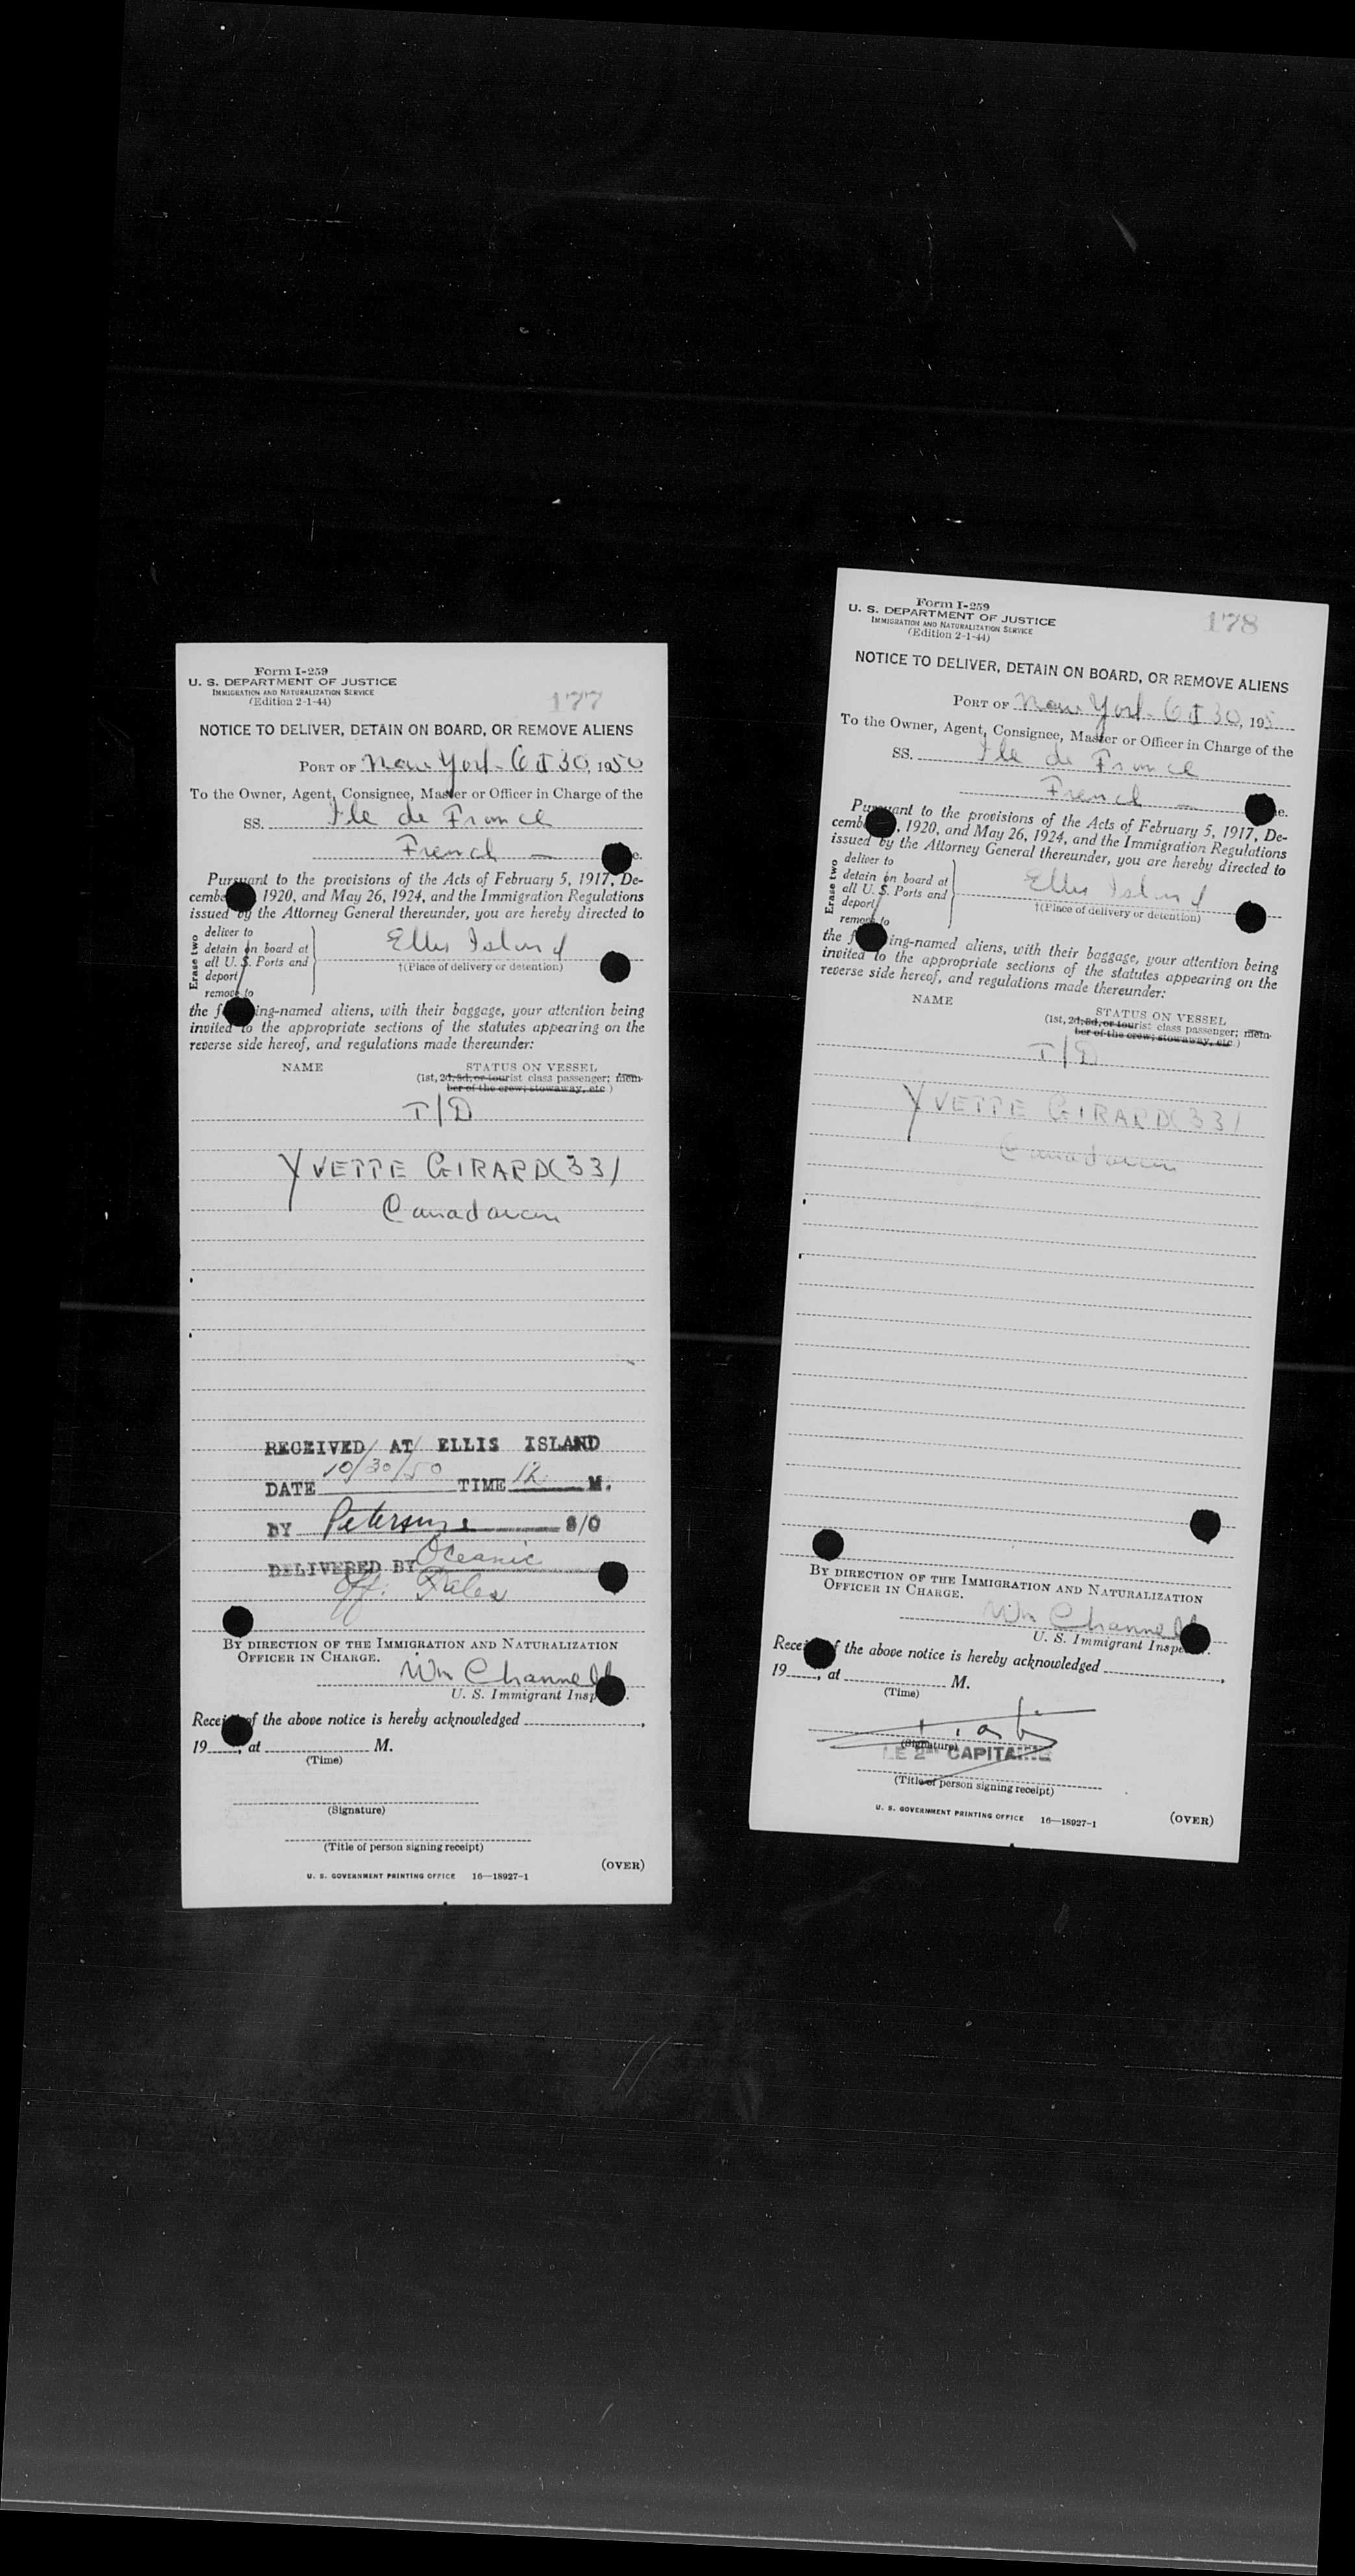 Form I-259
U. S. DEPARTMENT OF JUSTICE
IMMIGRATION AND NATURALIZATION SERVICE
(Edition 2-1-44)
177
NOTICE TO DELIVER, DETAIN ON BOARD, OR REMOVE ALIENS
PORT OF New York Oct 30, 1950
To the Owner, Agent, Consignee, Master or Officer in Charge of the
SS. Ile de France
French —
Pursuant to the provisions of the Acts of February 5, 1917, De-
cembe 1920, and May 26, 1924, and the Immigration Regulations
issued by the Attorney General thereunder, you are hereby directed to
Erase two
deliver to
detain on board at
all U. S. Ports and
deport
remove to
Ellis Island
†(Place of delivery or detention)
the f ing-named aliens, with their baggage, your attention being
invited to the appropriate sections of the statutes appearing on the
reverse side hereof, and regulations made thereunder:
NAME
STATUS ON VESSEL
(1st, 2d, 3d, or tourist class passenger; mem-
ber of the crew; stowaway, etc.)
T/D
YVETTE GIRARD (33)
RECEIVED AT ELLIS ISLAND
DATE 10/30/50 TIME 12 M.
BY S/O
DELIVERED BY Oceanic
Off.
BY DIRECTION OF THE IMMIGRATION AND NATURALIZATION
OFFICER IN CHARGE.
Wm Channell
U. S. Immigrant Insp
Recei of the above notice is hereby acknowledged ,
19 , at M.
(Time)
(Signature)
(Title of person signing receipt)
(OVER)
U. S. GOVERNMENT PRINTING OFFICE 16—18927-1
Form I-259
U. S. DEPARTMENT OF JUSTICE
IMMIGRATION AND NATURALIZATION SERVICE
(Edition 2-1-44)
178
NOTICE TO DELIVER, DETAIN ON BOARD, OR REMOVE ALIENS
PORT OF New York Oct 30, 195
To the Owner, Agent, Consignee, Master or Officer in Charge of the
SS. Ile de France
French —
Pursuant to the provisions of the Acts of February 5, 1917, De-
cemb , 1920, and May 26, 1924, and the Immigration Regulations
issued by the Attorney General thereunder, you are hereby directed to
Erase two
deliver to
detain on board at
all U. S. Ports and
deport
remove to
Ellis Island
†(Place of delivery or detention)
the f ing-named aliens, with their baggage, your attention being
invited to the appropriate sections of the statutes appearing on the
reverse side hereof, and regulations made thereunder:
NAME
STATUS ON VESSEL
(1st, 2d, 3d, or tourist class passenger; mem-
ber of the crew; stowaway, etc.)
T/D
YVETTE GIRARD (33)
BY DIRECTION OF THE IMMIGRATION AND NATURALIZATION
OFFICER IN CHARGE.
Wm Channell
U. S. Immigrant Inspe
Rece f the above notice is hereby acknowledged ,
19 , at M.
(Time)
(Signature)
LE 2nd CAPITAINE
(Title of person signing receipt)
U. S. GOVERNMENT PRINTING OFFICE 16—18927-1
(OVER)